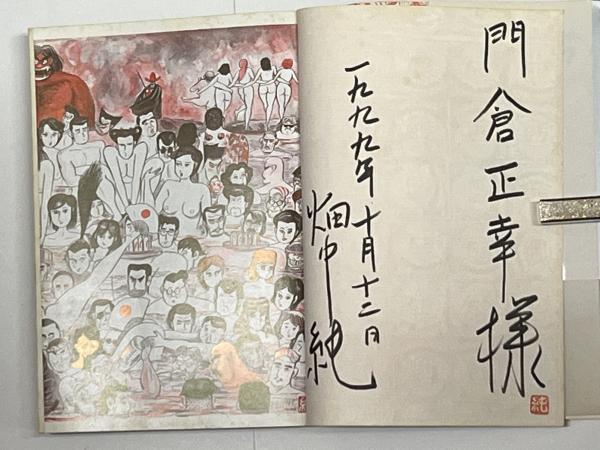 門倉正幸様
一九九九年
十月十二日
畑中純
純